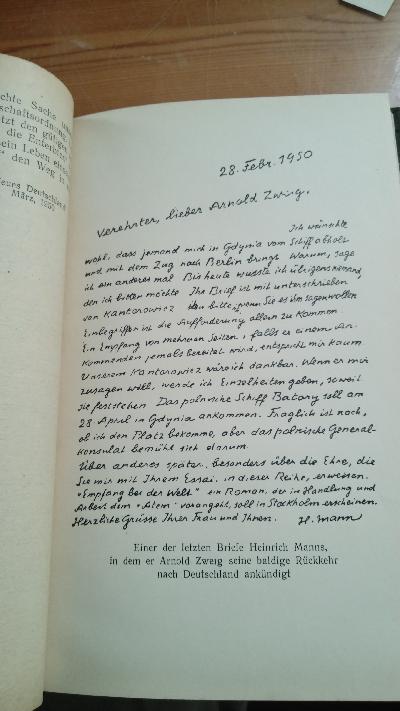 chte Sache
schaftsordnung
tzt den
die
ein Leben
den Weg in
eues Deutschland
März, 1950
28. Febr. 1950
Verehrter, lieber Arnold Zweig,
Ich wünschte
wohl, dass jemand mich in Gdynia vom Schiff abholt
und mit dem Zug nach Berlin bringt. Warum, sage
ich ein anderes Mal. Bis heute wusste ich übrigens niemand,
den ich bitten möchte. Ihr Brief ist mit unterschrieben
von Kantorowicz. Den bitte, wenn Sie es ihm sagen wollen
Einbegriffen ist die Aufforderung allein zu kommen.
Ein Empfang von mehreren Seiten, falls er einem An-
kommenden jemals bereitet wird, entspricht mir kaum.
Unserem Kantorowicz wäre ich dankbar. Wenn er mir
zusagen will, werde ich Einzelheiten geben, soweit
sie feststehen. Das polnische Schiff Batory soll am
28. April in Gdynia ankommen. Fraglich ist noch,
ob ich den Platz bekomme, aber das polnische General-
konsulat bemüht sich darum.
Über anderes später. besonders über die Ehre, die
Sie mir mit Ihrem Essai, in dieser Reihe, erweisen.
"Empfang bei der Welt" ein Roman, der in Handlung und
Arbeit dem "Atem" vorangeht, soll in Stockholm erscheinen.
Herzliche Grüsse Ihrer Frau und Ihnen. H. Mann
Einer der letzten Briefe Heinrich Manns,
in dem er Arnold Zweig seine baldige Rückkehr
nach Deutschland ankündigt